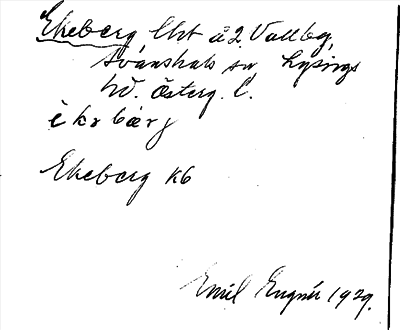 Ekeberg lht å 2 Vallbg,
Svanshals sn, Lysings
hd. Österg. l.
èkəbærj
Ekeberg kb
Emil Engnér 1929.